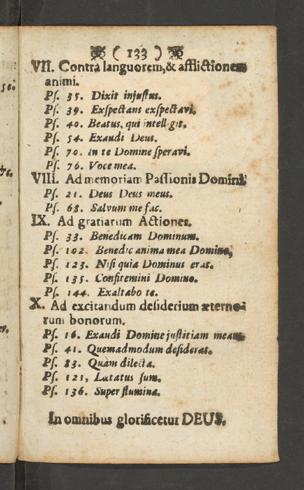 ( 133 )
VII. Contra languorem, & afflictionem
animi.
Ps. 35. Dixit injustus.
Ps. 39. Exspectans exspectavi.
Ps. 40. Beatus, qui intelligit.
Ps. 54. Exaudi Deus.
Ps. 70. in te Domine speravi.
Ps. 76. Voce mea.
VIII. Ad memoriam Passionis Domini.
Ps. 21. Deus Deus meus.
Ps. 68. Salvum me fac.
IX. Ad gratiarum Actiones.
Ps. 33. Benedicam Dominum.
Ps. 102. Benedic anima mea Domino,
Ps. 123. Nisi quia Dominus erat.
Ps. 135. Confitemini Domino.
Ps. 144. Exaltabo te.
X. Ad excitandum desiderium æterno-
rum bonorum.
Ps. 16. Exaudi Domine justitiam meam.
Ps. 41. Quemadmodum desiderat.
Ps. 83. Quàm dilecta.
Ps. 121, Lætatus sum.
Ps. 136. Super flumina.
In omnibus glorificetur DEUS.